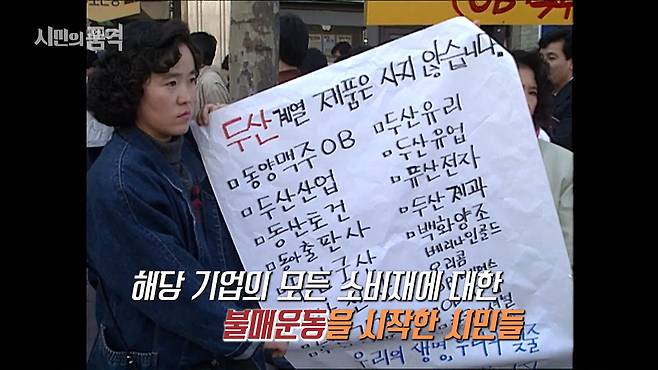 시민의 품격
(OB
두산 계열 제품은 사지 않습니다.
동양맥주 OB
두산산업
동산토건
동아출판사
두산유리
두산유업
두산전자
두산제과
백화양조
베리나인골드
유리콤
해당 기업의 모든 소비재에 대한
불매운동을 시작한 시민들
우리의 생명,